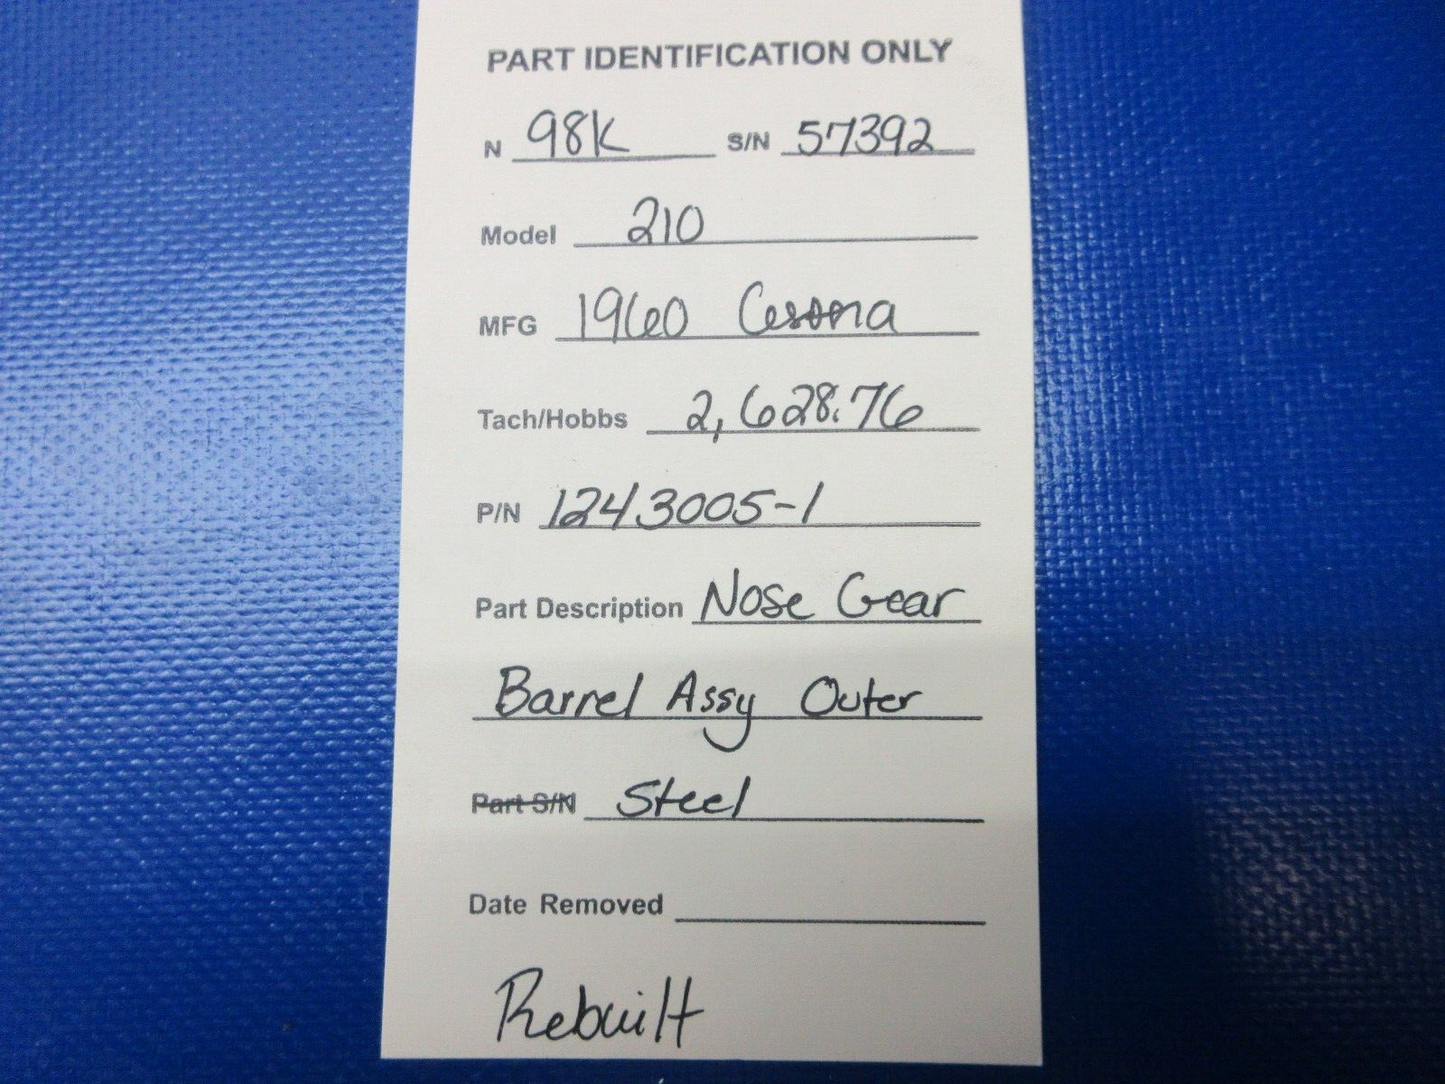 PART IDENTIFICATION ONLY
N 98K S/N 57392
Model 210
MFG 1960 Cessna
Tach/Hobbs 2,628.76
P/N 1243005-1
Part Description Nose Gear
Barrel Assy Outer
Part S/N Steel
Date Removed
Rebuilt